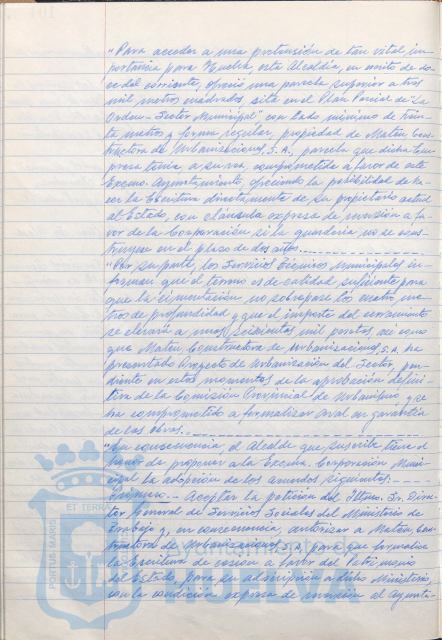 "Para acceder a una pretensión de tan vital im-
portancia para Huelva, esta Alcaldía, en escrito de do-
ce del corriente, ofreció una parcela superior a tres
mil metros cuadrados, sita en el Plan Parcial de "La
Orden - Sector Municipal" con lado mínimo de trein-
ta metros y forma regular, propiedad de Mateu Cons-
tructora de Urbanizaciones, S.A., parcela que dicha Em-
presa tenía, a su vez, comprometida a favor de este
Excmo. Ayuntamiento, ofreciendo la posibilidad de ha-
cer la Escritura directamente de su propietario actual
al Estado, con cláusula expresa de reversión a fa-
vor de la Corporación si la guardería no se cons-
truyese en el plazo de dos años.
"Por su parte, los Servicios Técnicos Municipales in-
forman que el terreno es de calidad suficiente para
que la cimentación no sobrepase los cuatro me-
tros de profundidad y que el importe del cerramiento
se elevará a unas seiscientas mil pesetas, así como
que Mateu, Constructora de Urbanizaciones, S.A. ha
presentado Proyecto de Urbanización del Sector, pen-
diente en estos momentos de la aprobación defini-
tiva de la Comisión Provincial de Urbanismo, y se
ha comprometido a formalizar aval en garantía
de las obras.
"En consecuencia, el Alcalde que suscribe tiene el
honor de proponer a la Excma. Corporación Muni-
cipal la adopción de los acuerdos siguientes:
Primero.- Aceptar la petición del Iltmo. Sr. Direc-
tor General de Servicios Sociales del Ministerio de
Trabajo y, en consecuencia, autorizar a Mateu, Cons-
tructora de Urbanizaciones, S.A. para que formalice
la Escritura de cesión a favor del Patrimonio
del Estado, para su adscripción a dicho Ministerio,
con la condición expresa de reversión al Ayunta-
ET TERRA
PORTUS MARIS
Ayuntamiento de
HUELVA